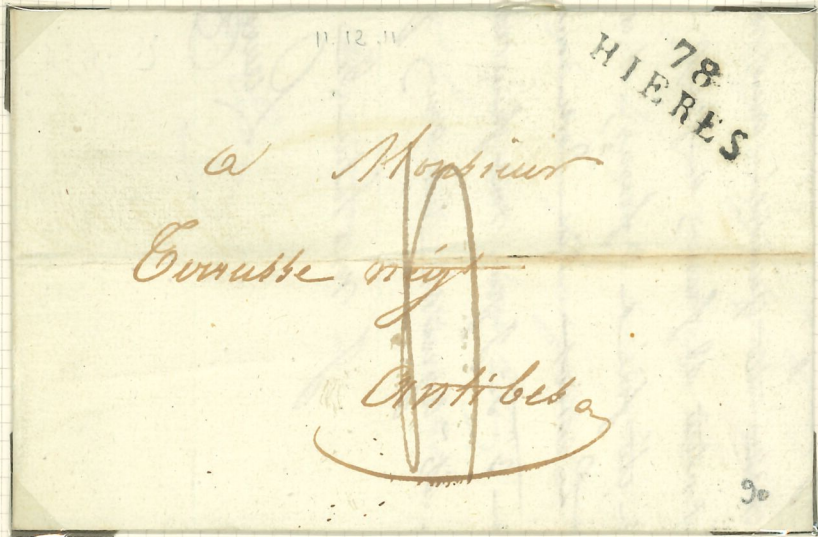 11.12.11
78
HIERES
a Monsieur
Terrasse négt
antibes
90